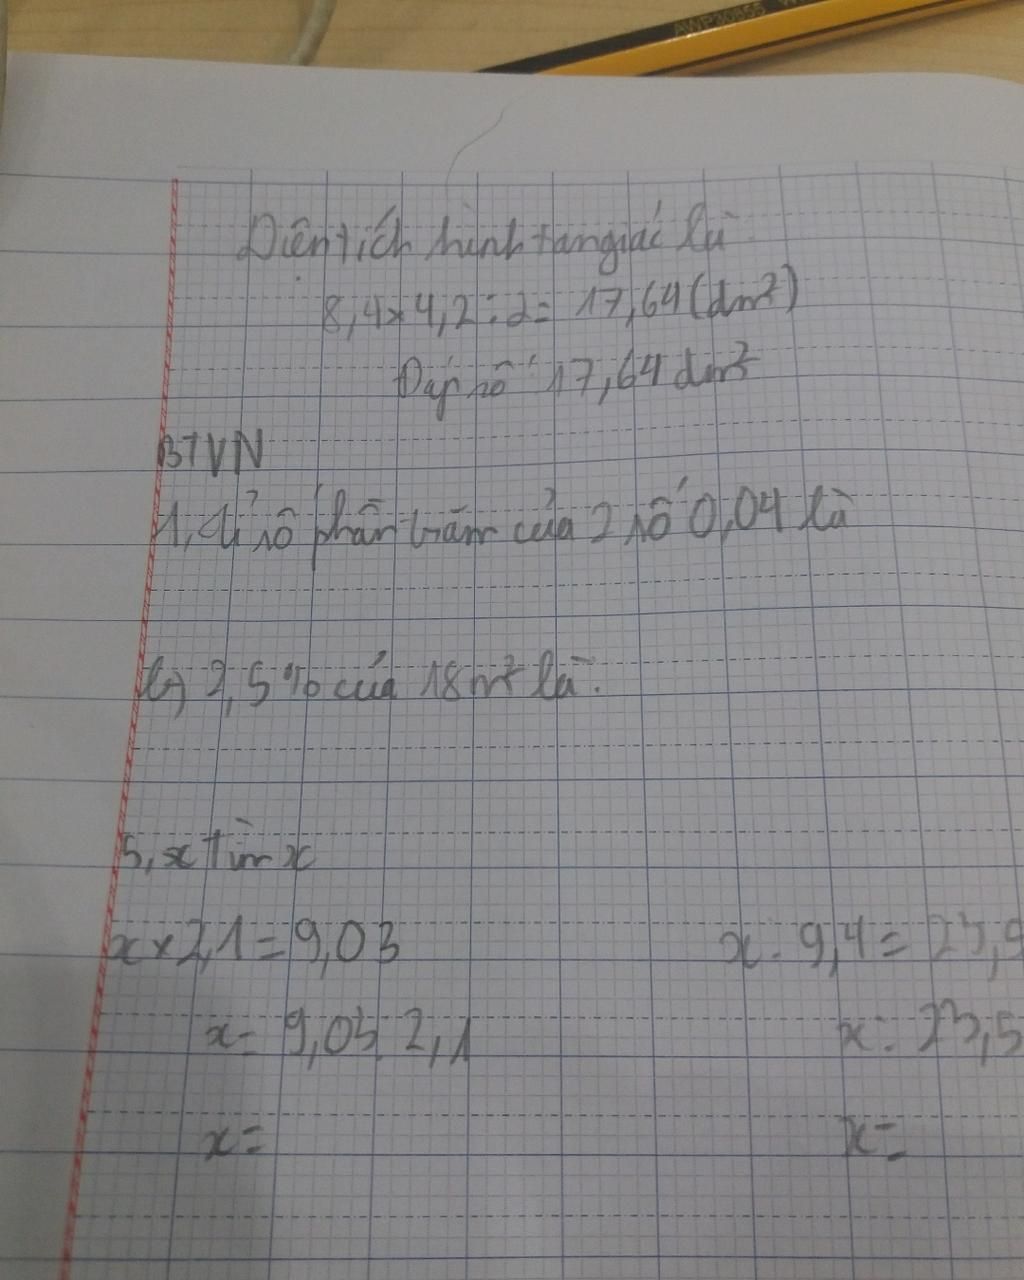 AWP30855
Diện tích hình tam giác là
8,4 x 4,2 : 2 = 17,64 (dm²)
Đáp số 17,64 dm²
BTVN
1, tỉ số phần trăm của 2 số 0,04 là
b) 2,5 % của 18 m² là :
5, x tìm x
x x 2,1 = 9,03
x : 9,4 = 23,
x = 9,03 2,1
x = 23,5
x =
x =